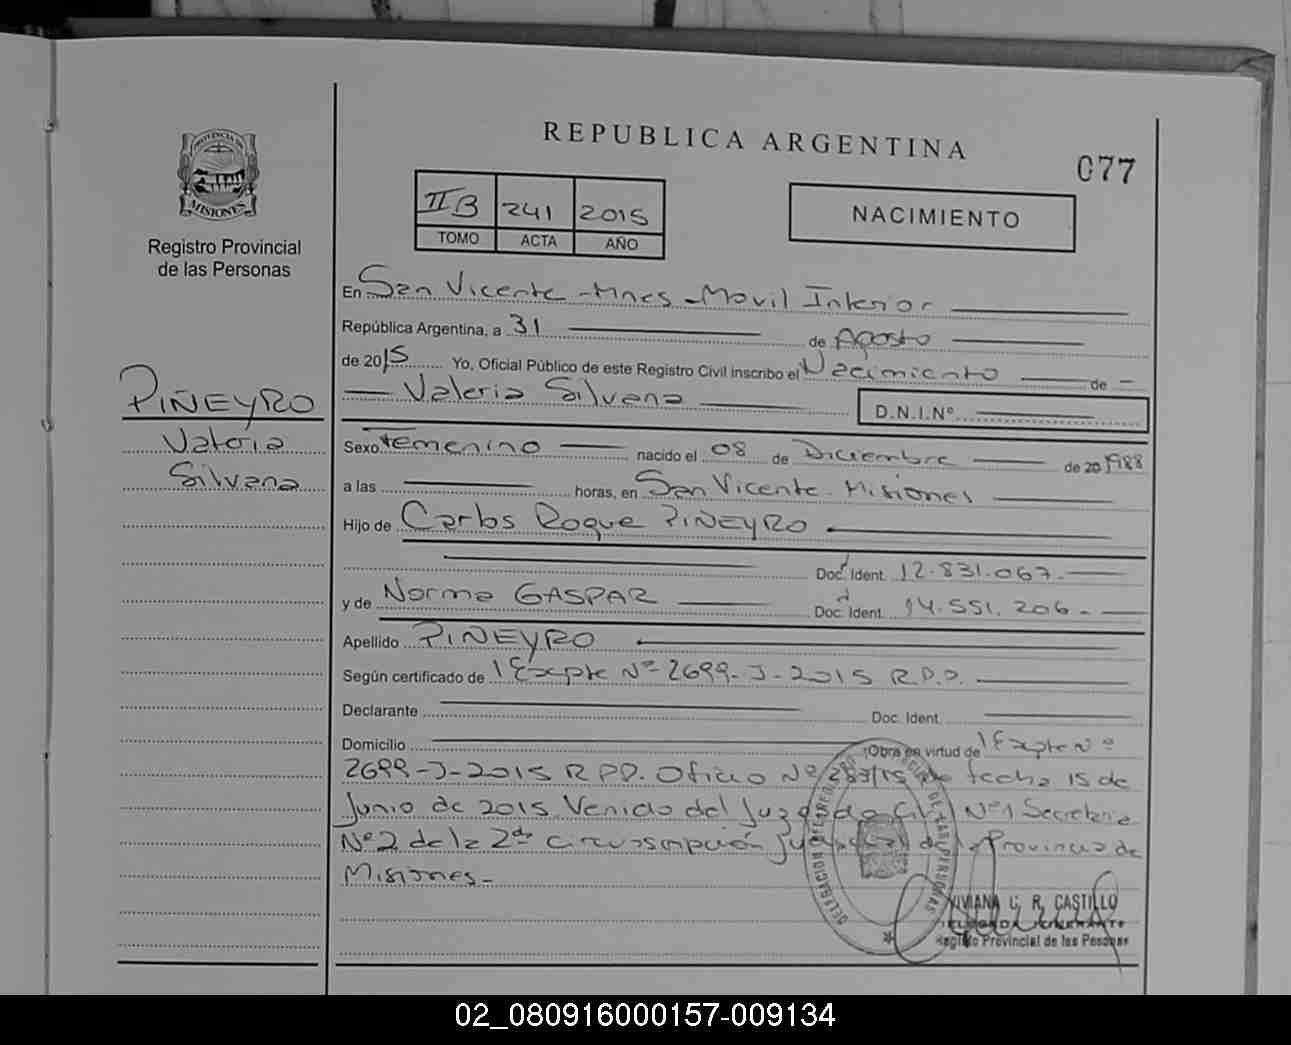 REPUBLICA ARGENTINA
077
PROVINCIA DE
MISIONES
Registro Provincial
de las Personas
II B 241 2015
TOMO ACTA AÑO
NACIMIENTO
En San Vicente - Mnes - Movil Interior
República Argentina, a 31 de Agosto
de 2015 Yo, Oficial Público de este Registro Civil inscribo el Nacimiento de
Valeria Silvana D.N.I.Nº
PIÑEYRO
Valeria
Silvana
Sexo Femenino nacido el 08 de Diciembre de 20 1988
a las horas, en San Vicente - Misiones
Hijo de Carlos Roque PIÑEYRO
Doc. Ident. 12.831.067.-
y de Norma GASPAR Doc. Ident. 14.551.206.-
Apellido PIÑEYRO
Según certificado de / Expte Nº 2699-J-2015 R.P.P.
Declarante Doc. Ident.
Domicilio Obra en virtud de / Expte Nº
2699-J-2015 R.P.P. Oficio Nº 283/15 de fecha 15 de
Junio de 2015. Venido del Juzgado Civil Nº1 Secretaria
Nº2 de la 2da Circunscripción Judicial de la Provincia de
Misiones.-
VIVIANA C. R. CASTILLO
Registro Provincial de las Personas
02_080916000157-009134